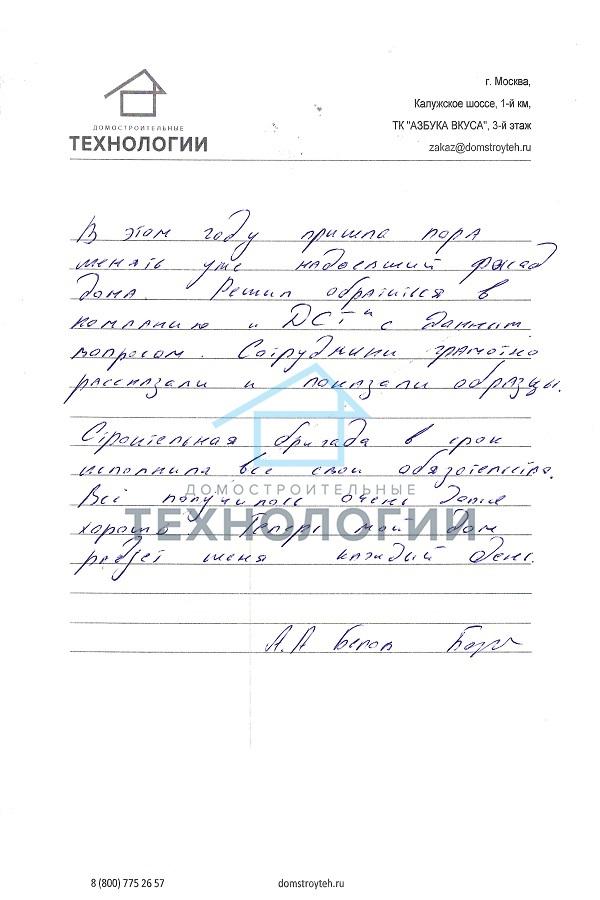 ДОМОСТРОИТЕЛЬНЫЕ
ТЕХНОЛОГИИ
г. Москва,
Калужское шоссе, 1-й км,
ТК "АЗБУКА ВКУСА", 3-й этаж
zakaz@domstroyteh.ru
В этом году пришла пора
менять уже надоевший фасад
дома. Решил обратится в
компанию " ДСТ " с данным
вопросом. Сотрудники грамотно
рассказали и показали образцы.
Строительная бригада в срок
исполнила все свои обязательства.
ДОМОСТРОИТЕЛЬНЫЕ
Всё получилось очень даже
ТЕХНОЛОГИИ
хорошо. Теперь мой дом
радует меня каждый день.
А.А Белов
8 (800) 775 26 57
domstroyteh.ru